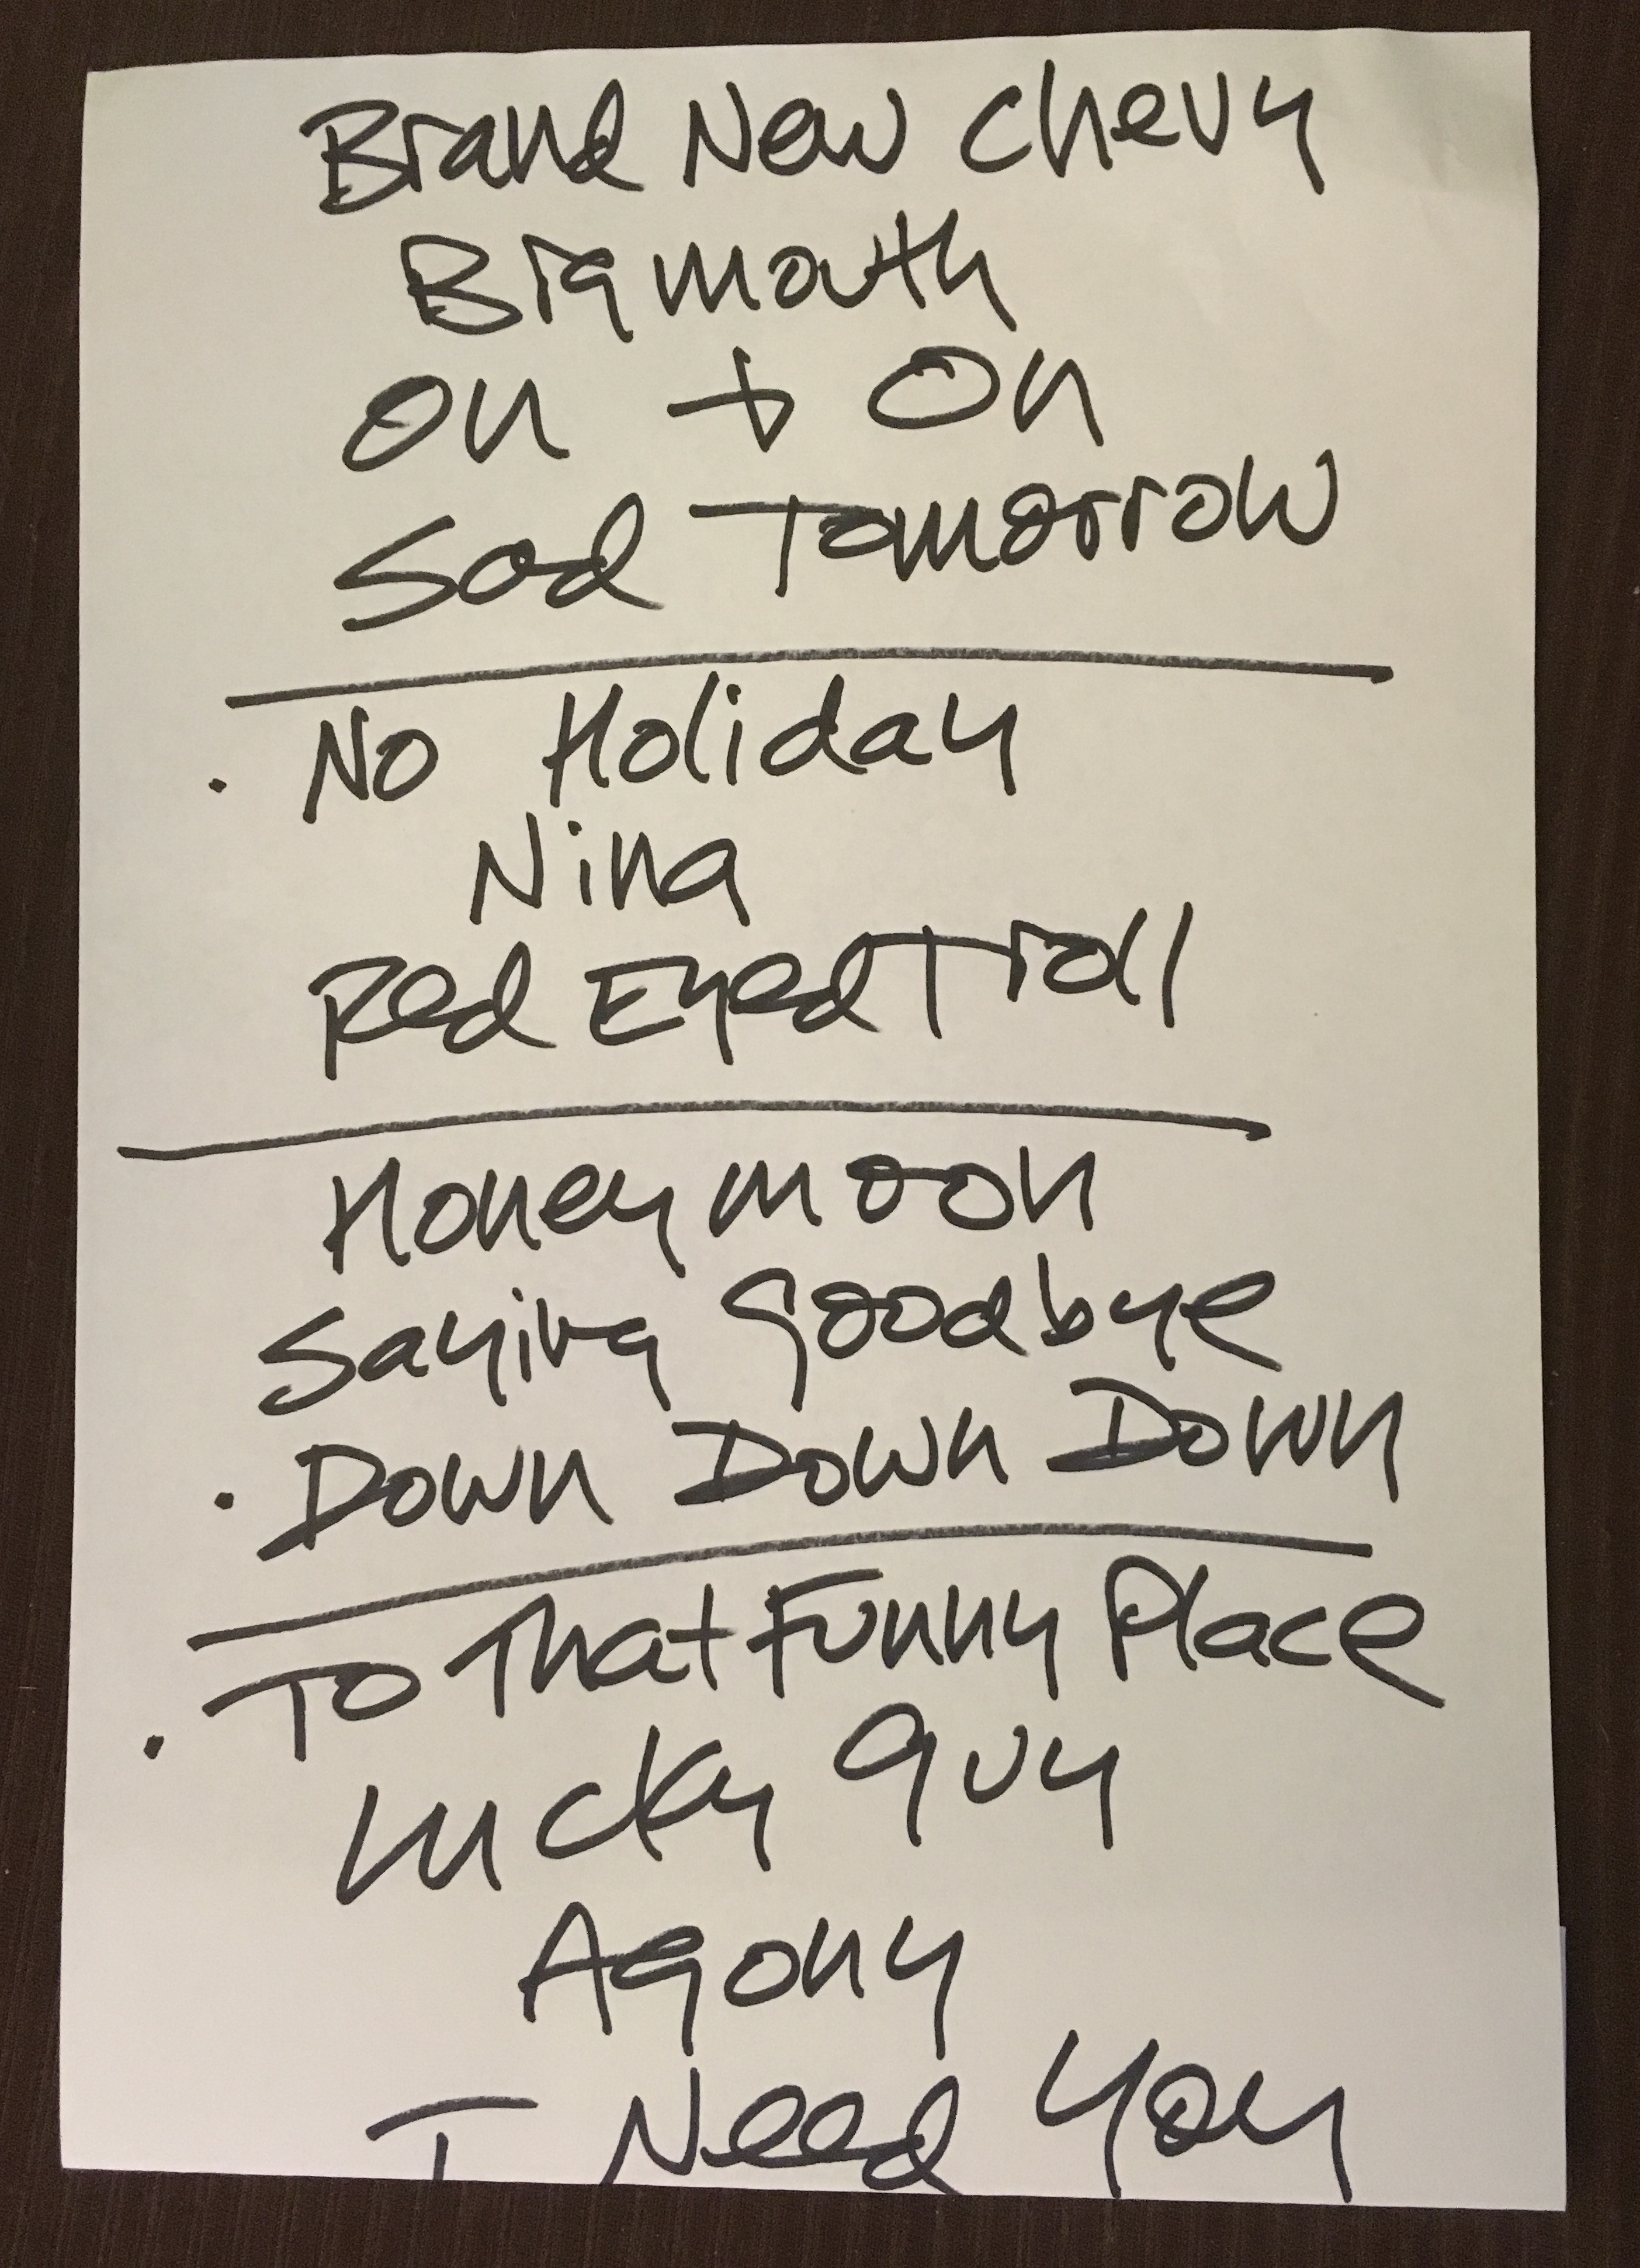 Brand New Chevy
Bigmouth
On + On
Sad Tomorrow
· No Holiday
Nina
Red Eyed Troll
Honeymoon
Saying Goodbye
· Down Down Down
· To That Funny Place
Lucky Guy
Agony
I Need You